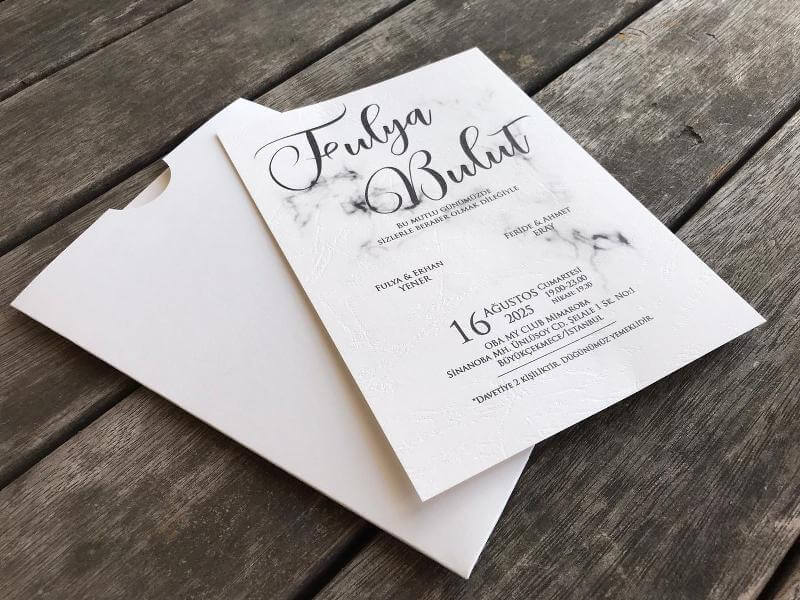 Fulya
Bulut
BU MUTLU GÜNÜMÜZDE
SİZLERLE BERABER OLMAK DİLEĞİYLE
FULYA & ERHAN
YENER
FERİDE & AHMET
ERAY
16 AĞUSTOS 2025
CUMARTESİ
19.00-23.00
NİKAH: 19.30
OBA MY CLUB MİMAROBA
SİNANOBA MH. ÜNLÜSOY CD. ŞELALE 1 SK. NO:1
BÜYÜKÇEKMECE/İSTANBUL
*DAVETİYE 2 KİŞİLİKTİR. DÜĞÜNÜMÜZ YEMEKLİDİR.